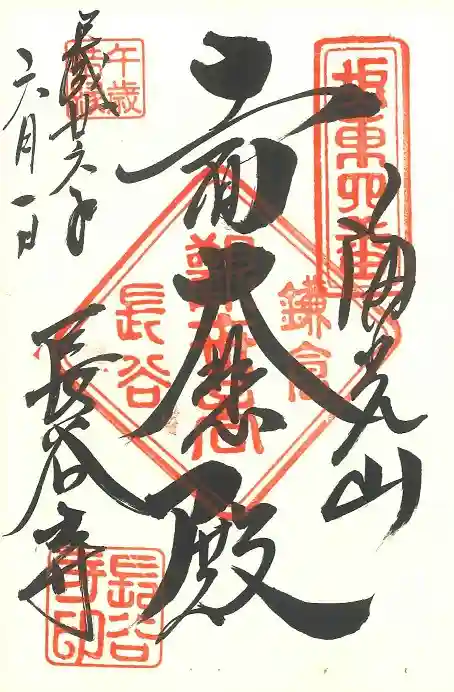 坂東四番
海光山
十一面大悲殿
鎌倉
長谷
午歳
結縁
平成廿六年
六月一日
長谷寺
長谷寺印